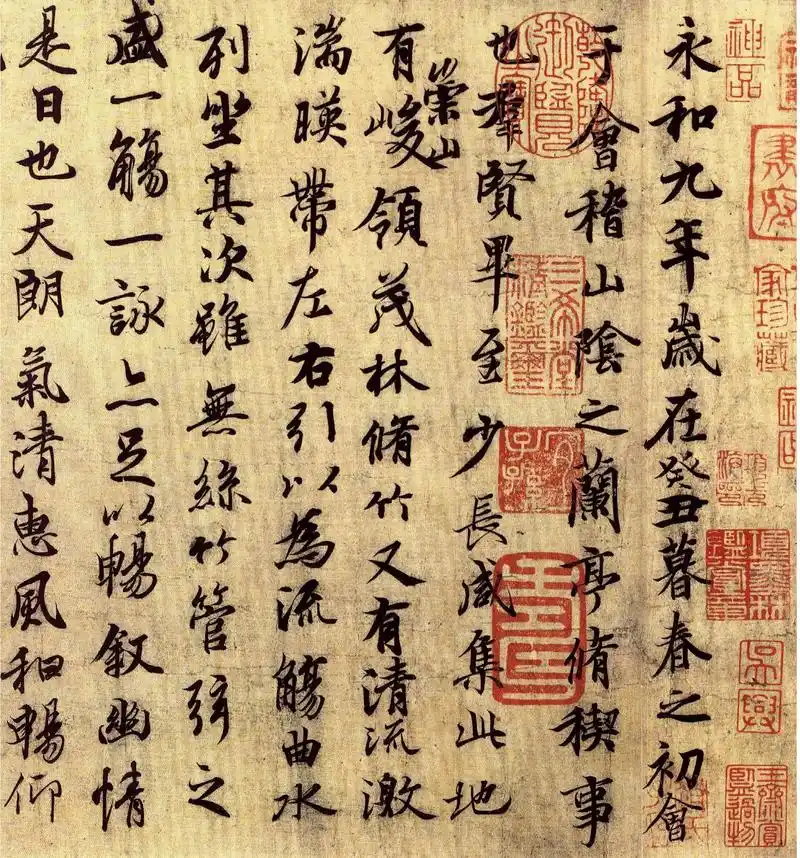 神品
吳興
永和九年歲在癸丑暮春之初會
于會稽山陰之蘭亭脩稧事
三希堂精鑑璽
宜子孫
也羣賢畢至少長咸集此地
有崇山峻領茂林脩竹又有清流激
湍暎帶左右引以為流觴曲水
列坐其次雖無絲竹管弦之
盛一觴一詠亦足以暢敘幽情
是日也天朗氣清惠風和暢仰